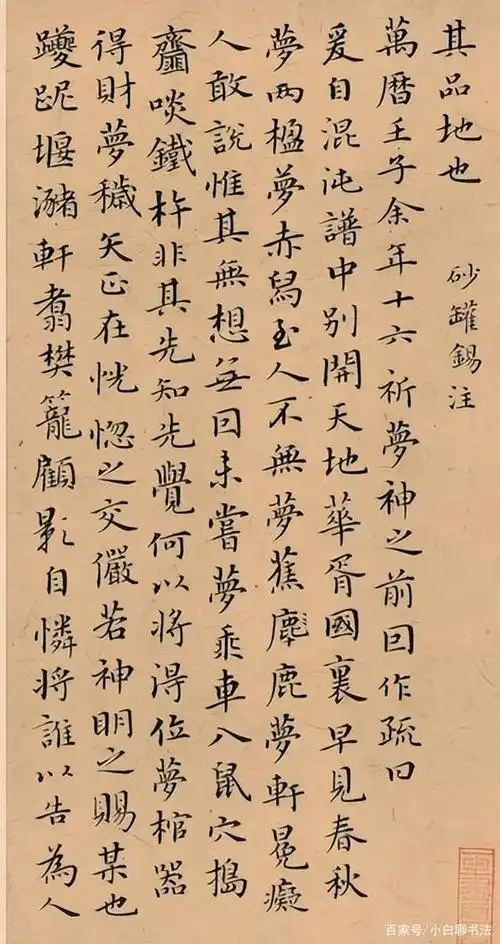 其品地也
砂罐錫注
萬曆壬子余年十六祈夢神之前因作疏曰
爰自混沌譜中別開天地華胥國裏早見春秋
夢兩楹夢赤舄至人不無夢蕉鹿夢軒冕癡
人敢說惟其無想無因未嘗夢乘車入鼠穴搗
齏啖鐵杵非其先知先覺何以將得位夢棺器
得財夢穢矢正在恍惚之交儼若神明之賜某也
躨跜堰瀦軒翥樊籠顧影自憐將誰以告為人
百家号/小白聊书法